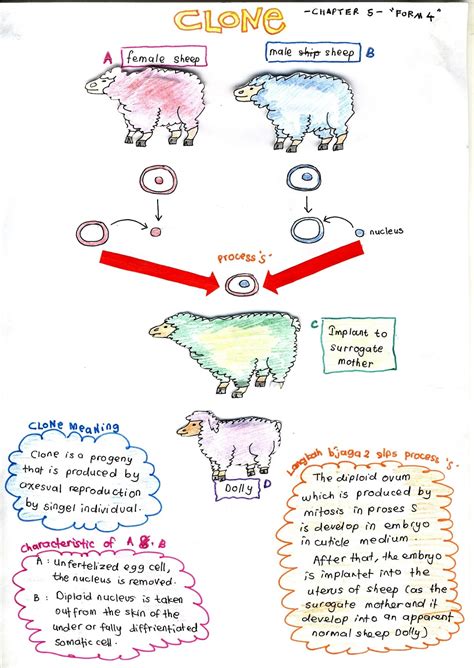 CLONE
-CHAPTER 5- "FORM 4"
A female sheep
male ship sheep B
nucleus
process's
C Implant to
surrogate
mother
Dolly D
Clone Meaning
Clone is a progeny
that is produced by
axesval reproduction
by singel individual.
Characteristic of A & B
A : Unfertelized egg cell,
the nucleus is removed.
B : Diploid nucleus is taken
outfrom the skin of the
under or fally diffrientiated
somatic cell.
Langkah b'jaga2 slps process's
The diploid ovum
which is produced by
mitosis in proses S
is develop in embryo
in cuticle medium.
After that, the embryo
is implantet into the
uterus of sheep (as the
surogate mother and it
develop into an apparent
normal sheep Dolly)